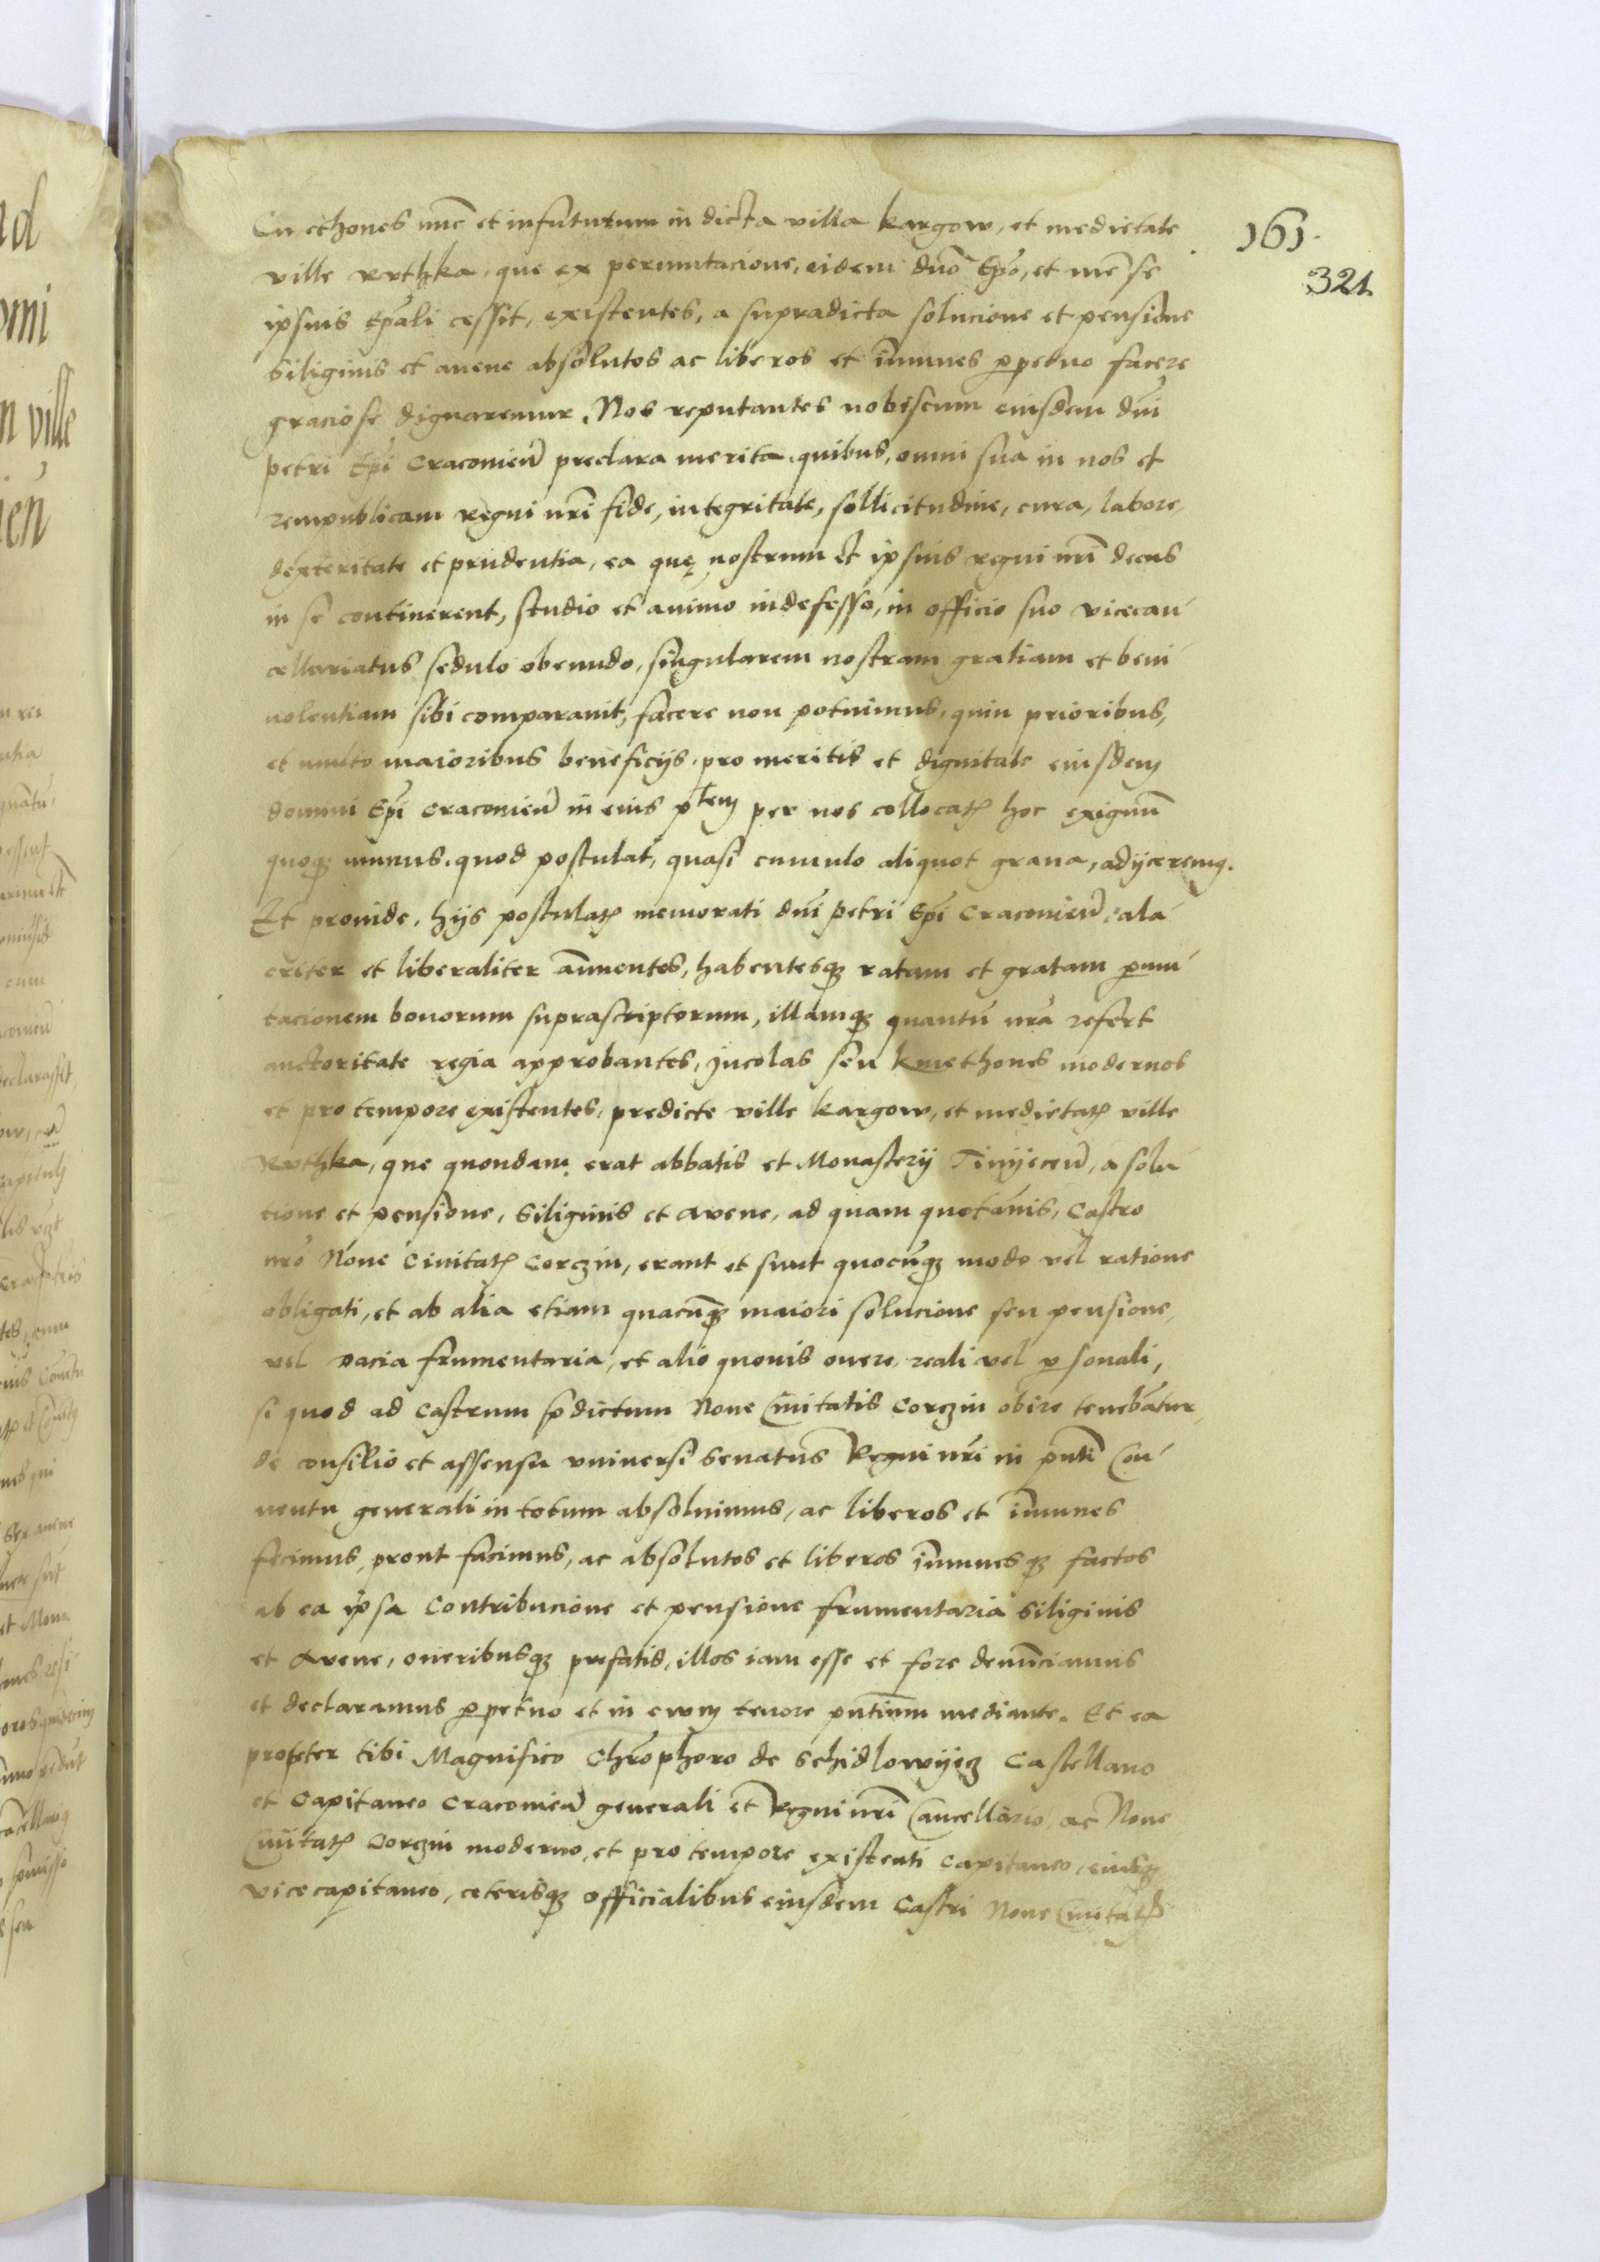 161.
321
Cmethones nũc et in futurum in dicta villa Kargow, et medietate
ville Ruthka, que ex permutacione, eidem dño Ep̃o, et mẽse
ipsius Ep̃ali cessit, existentes, a supradicta solucione et pensione
siliginis et avene absolutos ac liberos et im̃unes ꝑpetuo facere
graciose dignaremur. Nos reputantes nobiscum eiusdem dñi
petri Ep̃i Cracovieñ preclara merita quibus, omni sua in nos et
rempublicam regni nr̃i fide, integritate, sollicitudine, cura, labore,
dexteritate et prudentia, ea quę nostrum et ipsius regni nr̃i decus
in se continerent, studio et animo indefesso, in officio suo vicecan
cellariatus sedulo obeundo, singularem nostram gratiam et beni
volentiam sibi comparavit, facere non potuimus, quin prioribus,
et multo maioribus beneficijs, pro meritis et dignitate eiusdem
domini Ep̃i Cracovieñ in eius ꝑtem per nos collocatꝭ hoc exiguũ
quoqꝫ munus, quod postulat, quasi cumulo aliquot grana, adijceremꝰ.
Et proinde, hijs postulatꝭ memorati dñi petri Ep̃i Cracovieñ ala
criter et liberaliter an̄uentes, habentesqꝫ ratam et gratam ꝑmu
tacionem bonorum suprascriptorum, illamqꝫ quantũ nr̃a refert
auctoritate regia approbantes, Incolas seu kmethones modernos
et pro tempore existentes, predicte ville Kargow, et medietatꝭ ville
Ruthka, que quondam erat abbatis et Monasterij Tinijeceñ, a solu
tione et pensione, siliginis et avene, ad quam quotan̄is, Castro
nr̃o Nove Civitatꝭ Corczin, erant et sunt quocũqꝫ modo vel ratione
obligati, et ab alia etiam quacũqꝫ maiori solucione seu pensione,
vel dacia frumentaria, et alio quovis onere reali vel ꝑsonali,
si quod ad Castrum p̃dictum Nove Civitatis Corczin obire tenebãtur,
de consilio et assensu universi senatus Regni nr̃i in pñti Con
ventu generali in totum absolvimus, ac liberos et im̃unes
fecimus, prout facimus, ac absolutos et liberos im̃unesqꝫ factos
ab ea ipsa Contribucione et pensione frumentaria siliginis
et Avene, oneribusqꝫ prefatis, illos iam esse et fore denũciamus
et declaramus ꝑpetuo et in evum tenore pñtium mediante. Et ea
propter tibi Magnifico Chr̃ophoro de Schidlowijecz Castellano
et Capitaneo Cracovieñ generali et Regni nr̃i Cancellario, ac Nove
Civitatꝭ Corczin moderno, et pro tempore existenti Capitaneo, eiusqꝫ
vicecapitaneo, ceterisqꝫ officialibus eiusdem Castri Nove Civitatꝭ